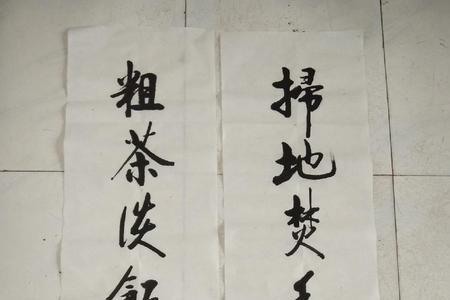 掃地焚
粗茶淡飯